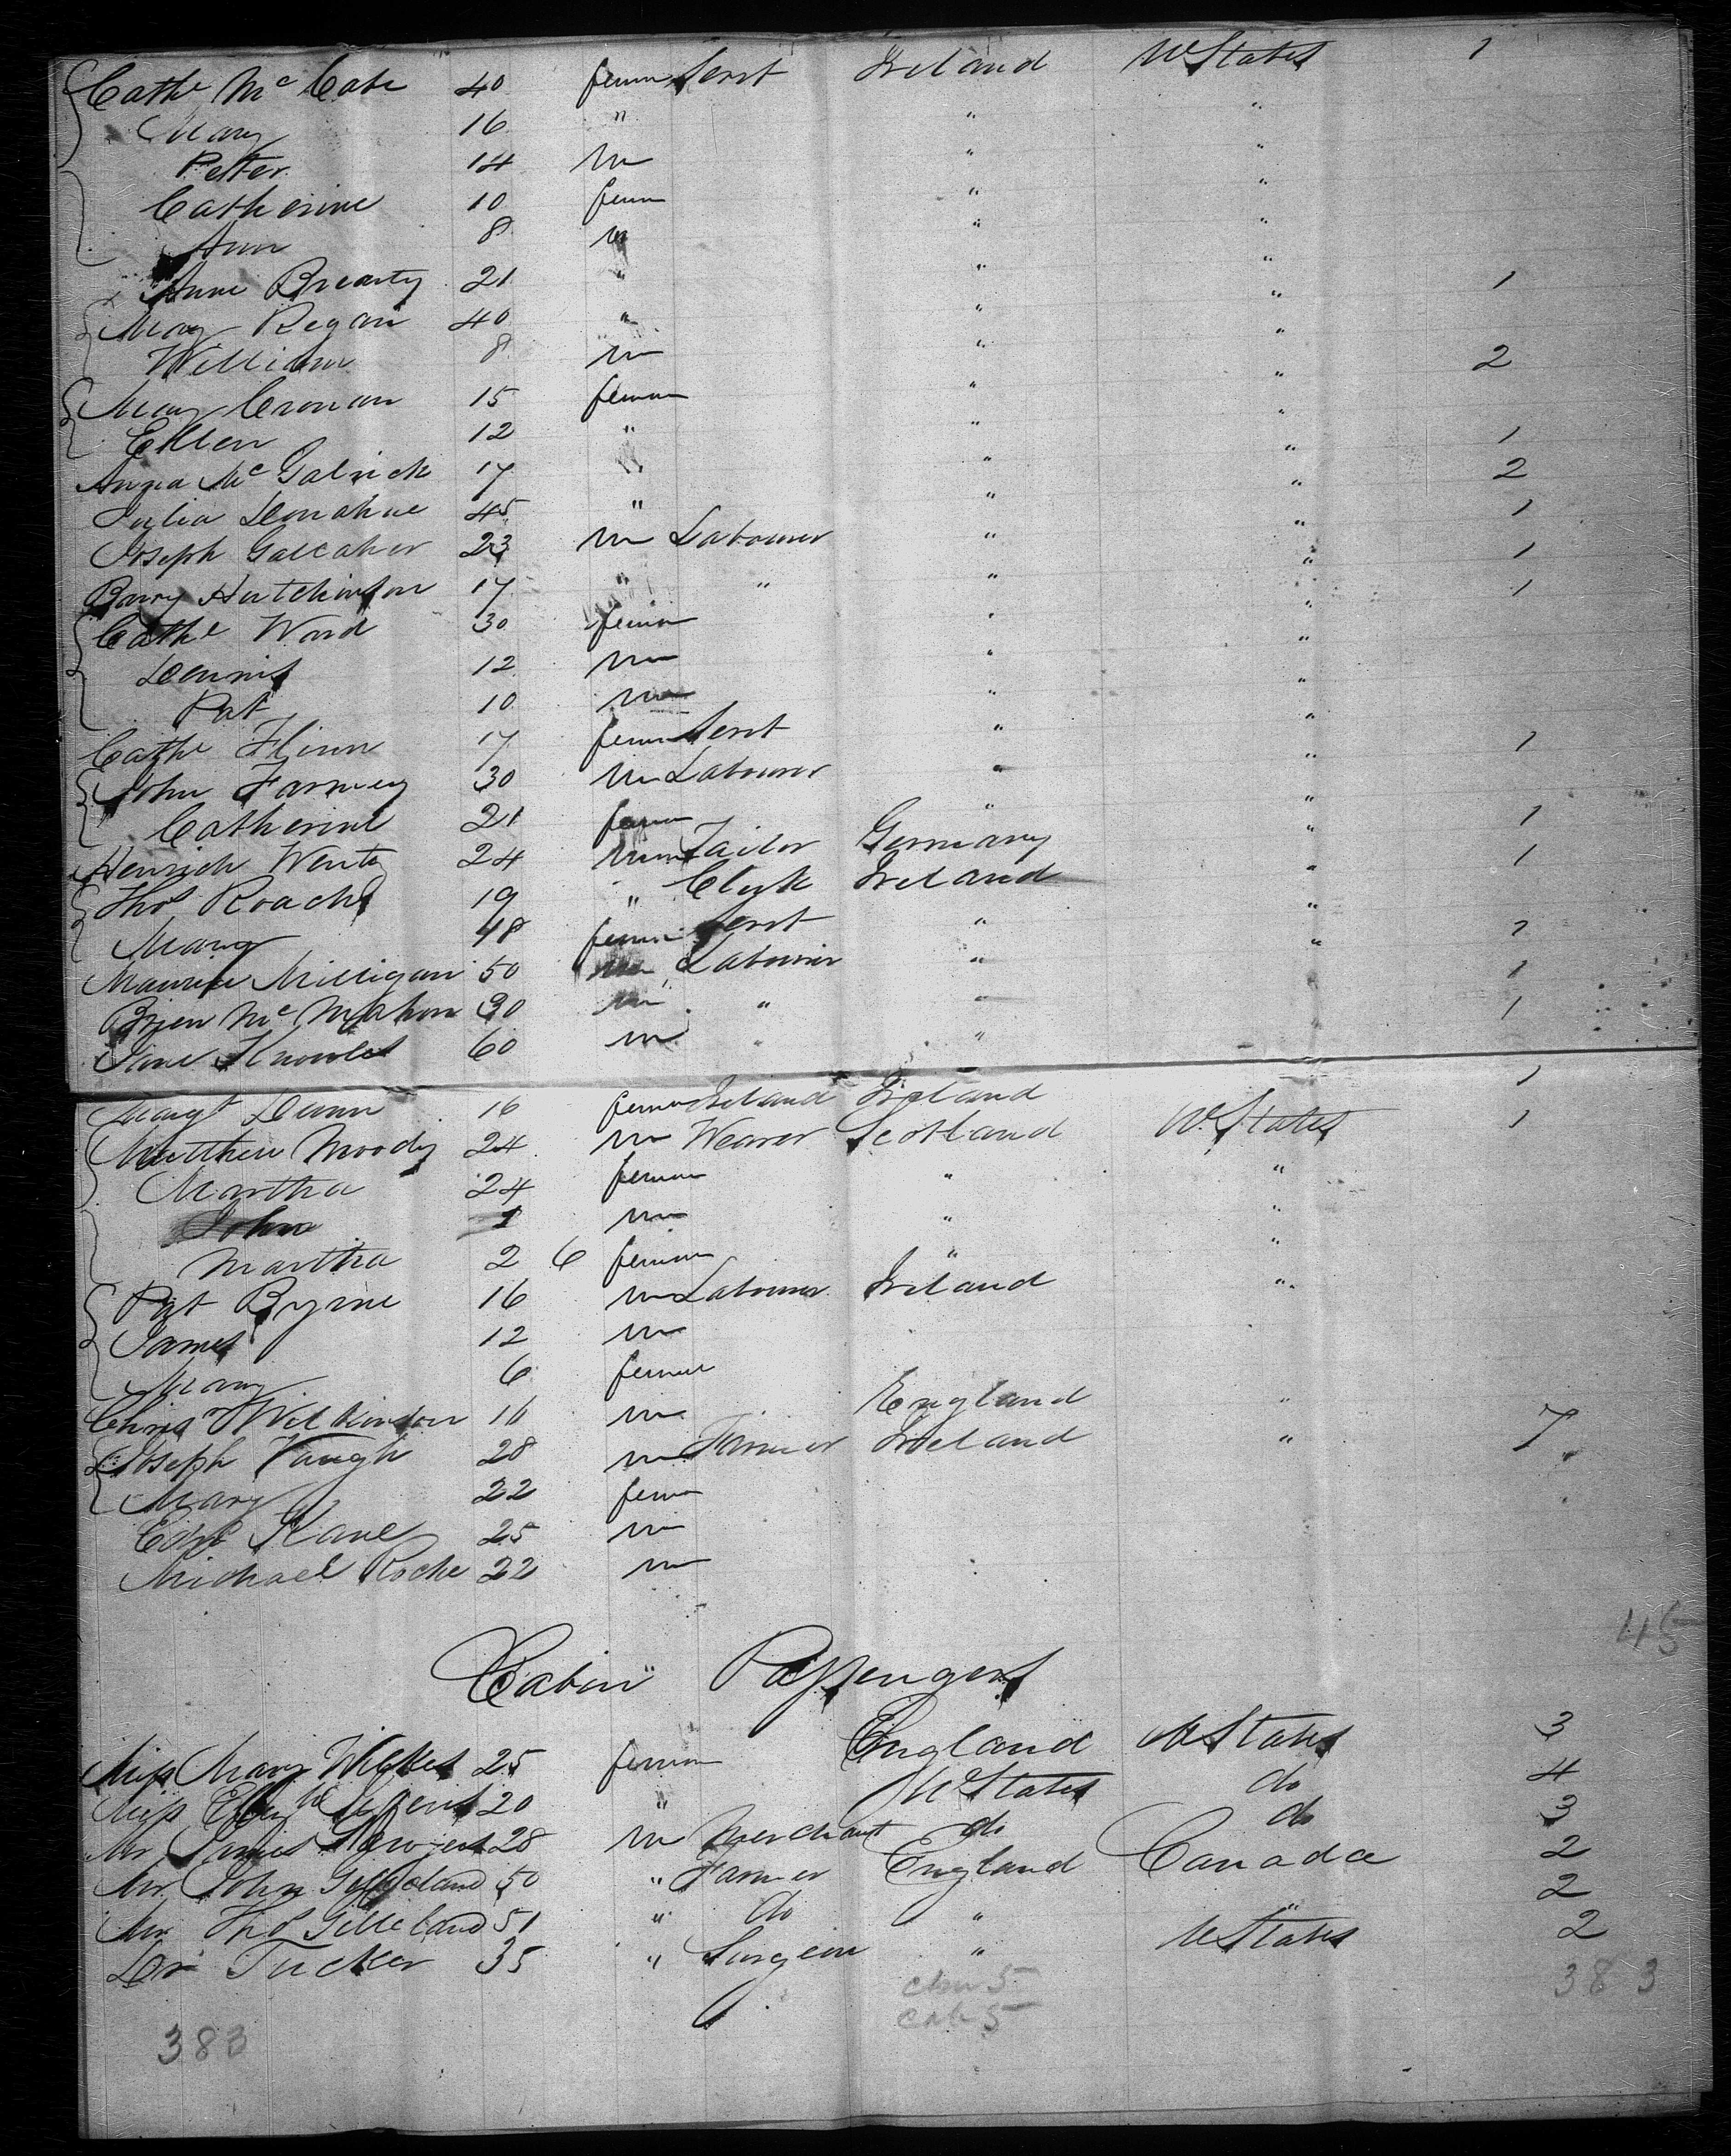 Cathe McCabe 40 fem Servt Ireland U States 1
Mary 16 " " "
Petter 14 m " "
Catherine 10 fem " "
Ann 8 m " "
Anne Brearty 21 " " " 1
Mary Regan 40 " " "
William 8 m " " 2
Mary Cronan 15 fem " "
Ellen 12 " " " 1
Anna Mc Galrick 17 " " " 2
Julia Donahue 45 " " " 1
Joseph Gallaher 23 m Labourer " " 1
Barry Hutchinson 17 " " " " 1
Cathe Ward 30 fem " "
Dennis 12 m " "
Pat 10 m " "
Cathe Flinn 17 fem Servt " " 1
John Farmey 30 m Labourer " "
Catherine 21 fem " " 1
Henrich Wentz 24 m Tailor Germany " 1
Thos Roachs 19 " Clerk Ireland "
Mary 48 fem Servt " "
Maurice Milligan 50 m Labourer " " 1
Brien Mc Mahon 30 m " " 1
Jane Knowles 60 m " "
Margt Dunn 16 fem Ireland Ireland 1
Matthew Moody 24 m Weaver Scotland U. States 1
Martha 24 fem " "
John 1 m " "
Martha 2 6 fem " "
Pat Byrne 16 m Labourer Ireland "
James 12 m
Mary 6 fem
Chrisr Wilkinson 16 m England "
Joseph Vaugh 28 m Farmer Ireland " 7
Mary 22 fem
Edwd Kane 25 m
Michael Roche 22 m
45
Cabin Passengers
Miss Mary Wilkes 25 fem England U States 3
Miss 20 " U States do 4
Mr James 28 m Merchant do do 3
Mr. John Gilleland 50 " Farmer England Canada 2
Mr Thos Gilleland 51 " do " " 2
Dr Tucker 35 " Surgeon " U States 2
383
5
cab 5
383